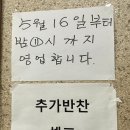 5월 16일부터
밤 ⑪시 까지
영업합니다.
추가반찬